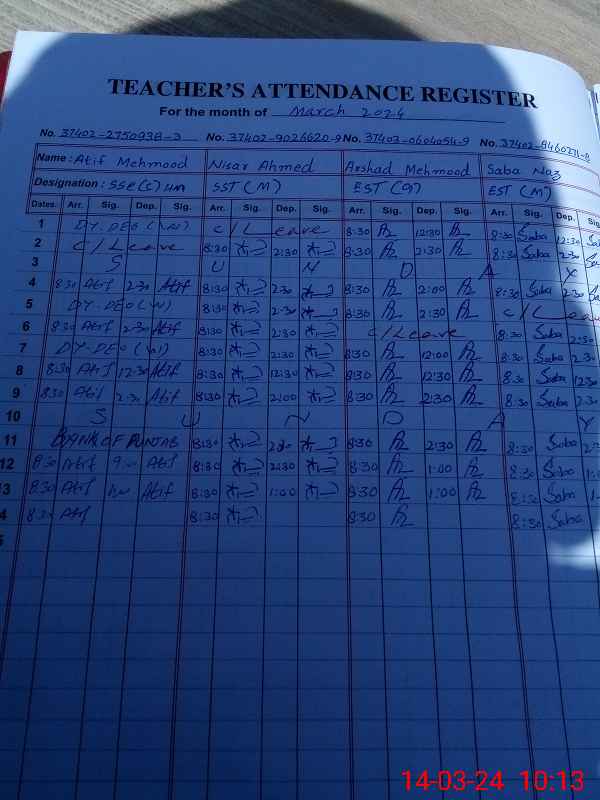 TEACHER'S ATTENDANCE REGISTER
For the month of March 2024
No. 37402-2750938-3 No: 37402-9026620-9 No. 37403-0604054-9 No. 37402-8460271-8
Name: Atif Mehmood Nisar Ahmed Arshad Mehmood Saba Naz
Designation: SSE(S) SST (M) EST (G) EST (M)
Dates. Arr. Sig. Dep. Sig. Arr. Sig. Dep. Sig. Arr. Sig. Dep. Sig. Arr. Sig. Dep. Sig.
1 DY. DEO (W) C/Leave 8:30 12:30 8:30 Saba 12:30
2 C/Leave 8:30 2:30 8:30 2:30 8:30 Saba 2:30
3 S U N D A Y
4 8:30 Atif 2:30 Atif 8:30 2:30 8:30 2:00 8:30 Saba 2:30
5 DY-DEO (W) 8:30 2:30 8:30 2:30 C/Leave
6 8:30 Atif 2:30 Atif 8:30 2:30 C/Leave 8:30 Saba 2:30
7 DY-DEO (W) 8:30 2:30 8:30 12:00 8:30 Saba 2:30
8 8:30 Atif 12:30 Atif 8:30 12:30 8:30 12:30 8:30 Saba 12:30
9 8:30 Atif 2:30 Atif 8:30 2:00 8:30 2:30 8:30 Saba 2:30
10 S U N D A Y
11 BANK OF PUNJAB 8:30 2:30 8:30 2:30 8:30 Saba
12 8:30 Atif Atif 8:30 2:30 8:30 1:00 8:30 Saba
13 8:30 Atif Atif 8:30 1:00 8:30 1:00 8:30 Saba
4 8:30 Atif 8:30 8:30 8:30 Saba
14-03-24 10:13